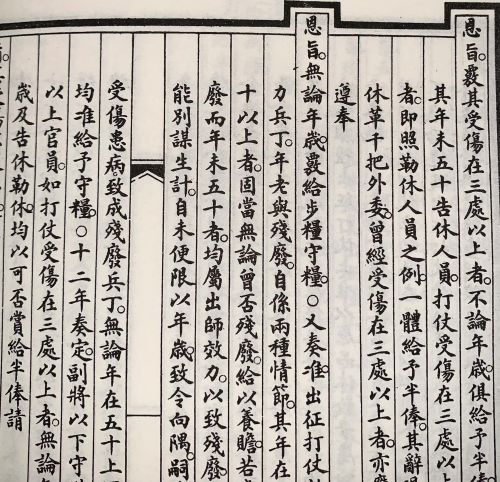 恩旨。覈其受傷在三處以上者。不論年歲。俱給予半俸
其年未五十告休人員。打仗受傷在三處以
者。即照勒休人員之例。一體給予半俸。其辭
休革千把外委。曾經受傷在三處以上者。亦
遵奉
恩旨。無論年歲。覈給步糧守糧。○又奏准。出征打仗
力兵丁。年老與殘廢。自係兩種情節。其年在
十以上者。固當無論曾否殘廢。給以養贍。若
廢而年未五十者。均屬出師效力。以致殘廢
能別謀生計。自未便限以年歲。致令向隅。嗣
受傷患病。致成殘廢兵丁。無論年在五十上
均准給予守糧。○十二年奏定。副將以下守
以上官員。如打仗受傷在三處以上者。無論
歲及告休勒休。均以可否賞給半俸請